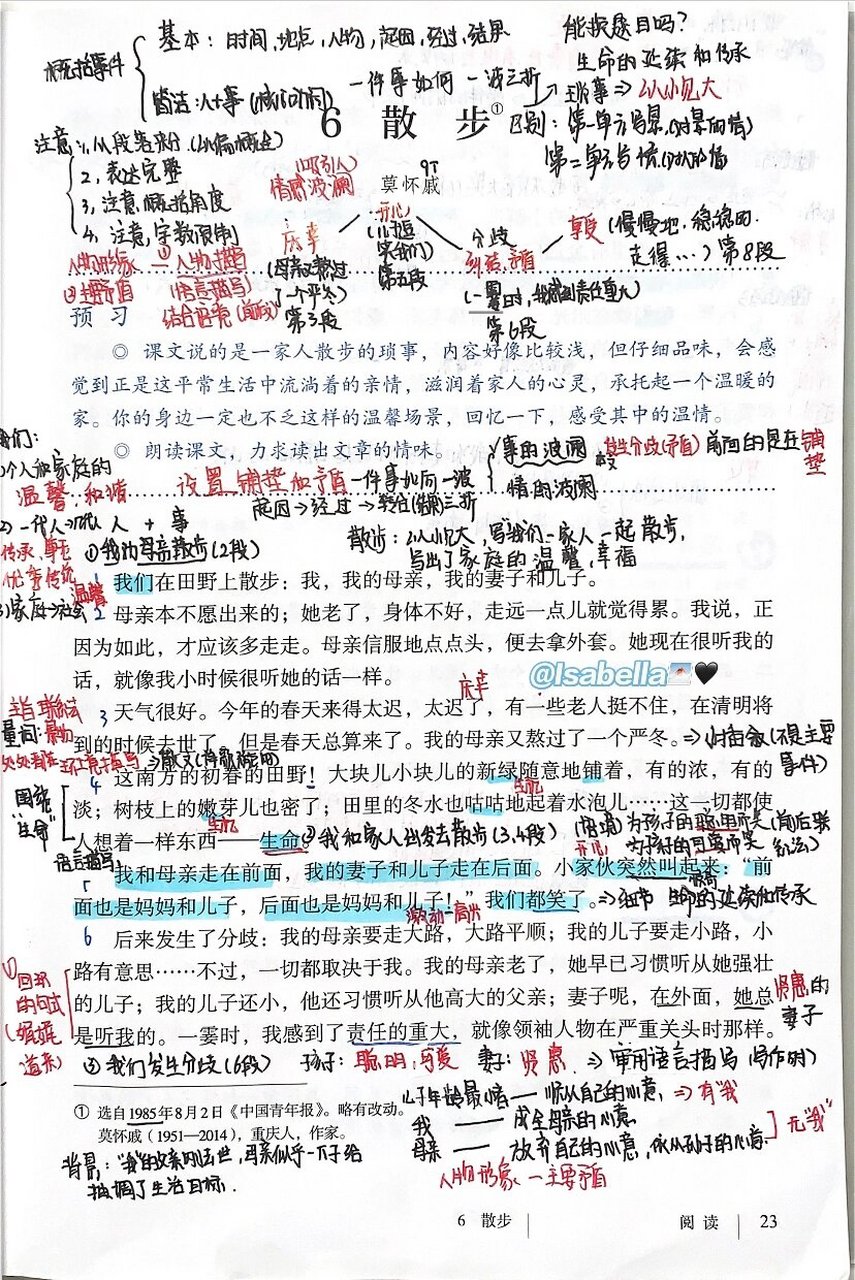 概括事件
基本：时间，地点，人物，起因，经过，结果
简洁：人+事（核心时间）
一件事如何一波三折
能换题目吗？
生命的延续和传承
琐事⇒以小见大
区别：第一单元写景（对景的情）
第二单元写情
6 散步①
莫怀戚
注意：1.
2，表达完整
3，注意概括角度
4，注意，字数限制
（吸引人）
情感波澜
人物形象
①人物描写
（语言描写）
②主要矛盾
结合语境
庆幸
（母亲又熬过了一个严冬）
第三段
开心
（儿逗笑我们）
第五段
分歧
矛盾
（一霎时，我感到责任重大）
第6段
享受
（慢慢地，稳稳的，走得…）第8段
预习
◎ 课文说的是一家人散步的琐事，内容好像比较浅，但仔细品味，会感
觉到正是这平常生活中流淌着的亲情，滋润着家人的心灵，承托起一个温暖的
家。你的身边一定也不乏这样的温馨场景，回忆一下，感受其中的温情。
◎ 朗读课文，力求读出文章的情味。
事的波澜
发生分歧（矛盾）前面的是在铺垫
情的波澜
我们：
个人和家庭的
温馨，和谐
设置铺垫和矛盾
一件事如何一波三折
起因→经过→转位（结果）
人 + 事
散步：以小见大，写我们一家人一起散步，
写出了家庭的温馨，幸福
①我和母亲散步（2段）
温馨
1 我们在田野上散步：我，我的母亲，我的妻子和儿子。
2 母亲本不愿出来的；她老了，身体不好，走远一点儿就觉得累。我说，正
因为如此，才应该多走走。母亲信服地点点头，便去拿外套。她现在很听我的
话，就像我小时候很听她的话一样。
@Isabella
庆幸
3 天气很好。今年的春天来得太迟，太迟了，有一些老人挺不住，在清明将
到的时候去世了。但是春天总算来了。我的母亲又熬过了一个严冬。
（不是主要事件）
环境描写
4 这南方的初春的田野！大块儿小块儿的新绿随意地铺着，有的浓，有的
淡；树枝上的嫩芽儿也密了；田里的冬水也咕咕地起着水泡儿……这一切都使
人想着一样东西——生命。
生机
生机
围绕“生命”
②我和家人出发去散步（3，4段）
为孩子的聪明而笑
开心
为孩子的可爱而笑
语言描写
5 我和母亲走在前面，我的妻子和儿子走在后面。小家伙突然叫起来：“前
面也是妈妈和儿子，后面也是妈妈和儿子！”我们都笑了。
⇒细节 生命的延续和传承
6 后来发生了分歧：我的母亲要走大路，大路平顺；我的儿子要走小路，小
路有意思……不过，一切都取决于我。我的母亲老了，她早已习惯听从她强壮
的儿子；我的儿子还小，他还习惯听从他高大的父亲；妻子呢，在外面，她总
是听我的。一霎时，我感到了责任的重大，就像领袖人物在严重关头时那样。
贤惠的妻子
③我们发生分歧（6段）
孩子：聪明，可爱 妻子：贤惠 ⇒审用语言描写（写作时）
① 选自1985年8月2日《中国青年报》。略有改动。
莫怀戚（1951—2014），重庆人，作家。
儿子年龄最小 — 顺从自己的心意，⇒有“我”
我 — 成全母亲的心意
母亲 — 放弃自己的心意，依从孙子的心意
无“我”
人物形象—主要矛盾
背景：“我”的父亲刚去世，母亲似乎一下子给
抽掉了生活目标．
6 散步 阅读 23